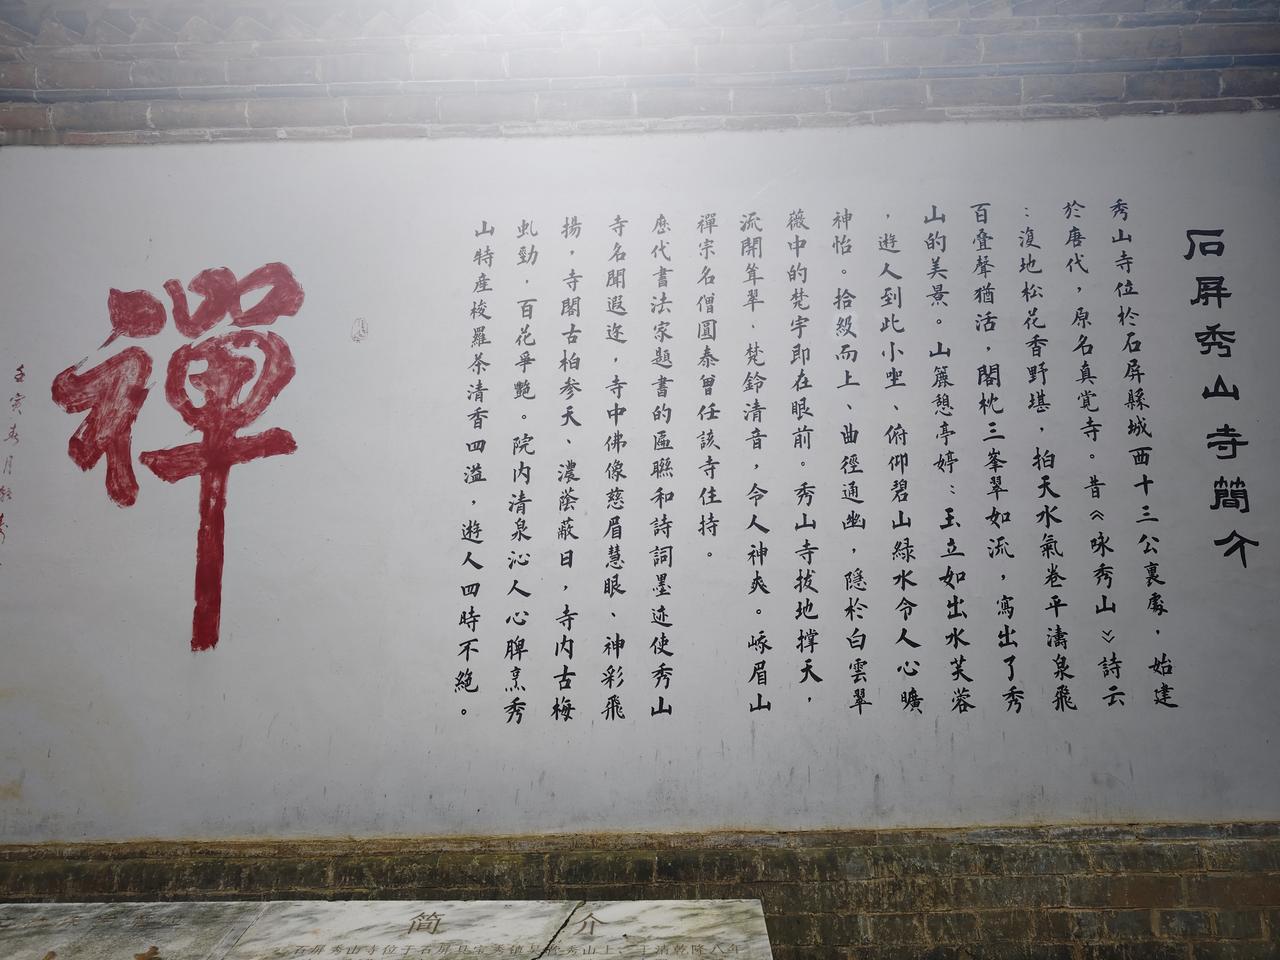 石屏秀山寺簡介
秀山寺位於石屏縣城西十三公裏處，始建
於唐代，原名真覚寺。昔《咏秀山》詩云
：復地松花香野堪，拍天水氣卷平濤泉飛
百叠聲猶活，閣枕三峯翠如流，寫出了秀
山的美景。山簾憩亭婷：玉立如出水芙蓉
，遊人到此小坐、俯仰碧山緑水令人心曠
神怡。拾級而上、曲徑通幽，隱於白雲翠
薇中的梵宇即在眼前。秀山寺拔地撑天，
流開聳翠、梵鈴清音，令人神爽。峨眉山
禪宗名僧圓泰曾任該寺住持。
歷代書法家題書的匾聯和詩詞墨迹使秀山
寺名聞遐迩，寺中佛像慈眉慧眼、神彩飛
揚，寺閣古柏参天、濃蔭蔽日，寺内古梅
虬勁，百花爭艷。院内清泉沁人心脾烹秀
山特産梭羅茶清香四溢，遊人四時不絶。
禪
壬寅春月
简介
石屏秀山寺位于石屏县宝秀镇吴营秀山上、于清乾隆八年